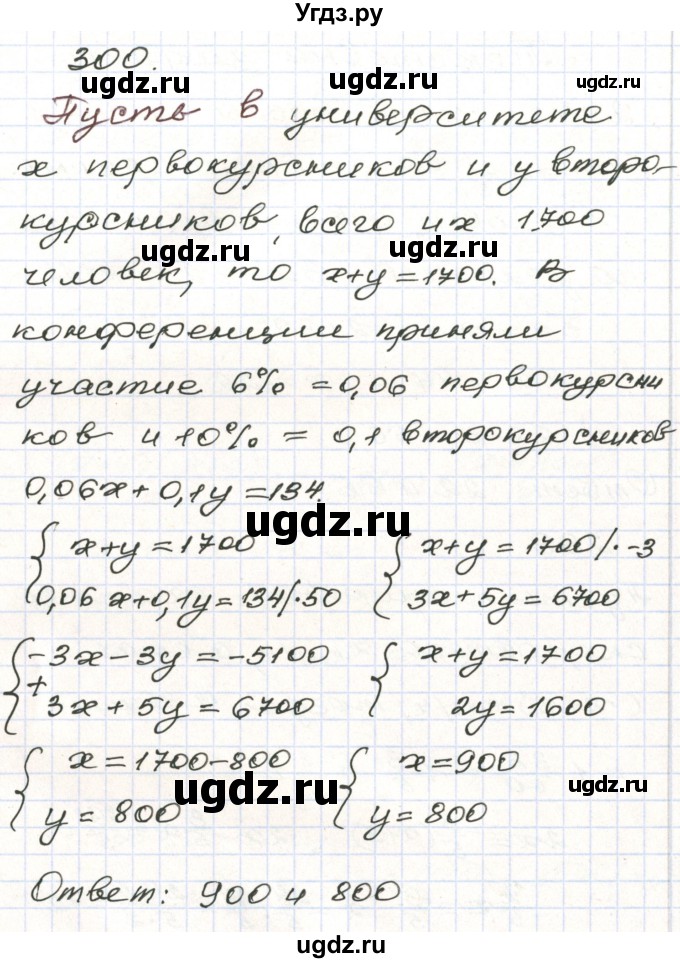 Угдз.ру
300.
ugdz.ru ugdz.ru ugdz.ru
Пусть в университете
x первокурсников и y второ-
курсников, всего их 1700
ugdz.ru ugdz.ru
человек, то x+y=1700. В
конференции приняли
участие 6% = 0,06 первокурсни
ков и 10% = 0,1 второкурсников
0,06x+0,1y=134.
ugdz.ru
{ x+y=1700 { x+y=1700/·-3
0,06x+0,1y=134/·50 3x+5y=6700
{ -3x-3y=-5100 { x+y=1700
+ 3x+5y=6700 2y=1600
{ x=1700-800 { x=900
ugdz.ru ugdz.ru
y=800 y=800
Ответ: 900 и 800
ugdz.ru